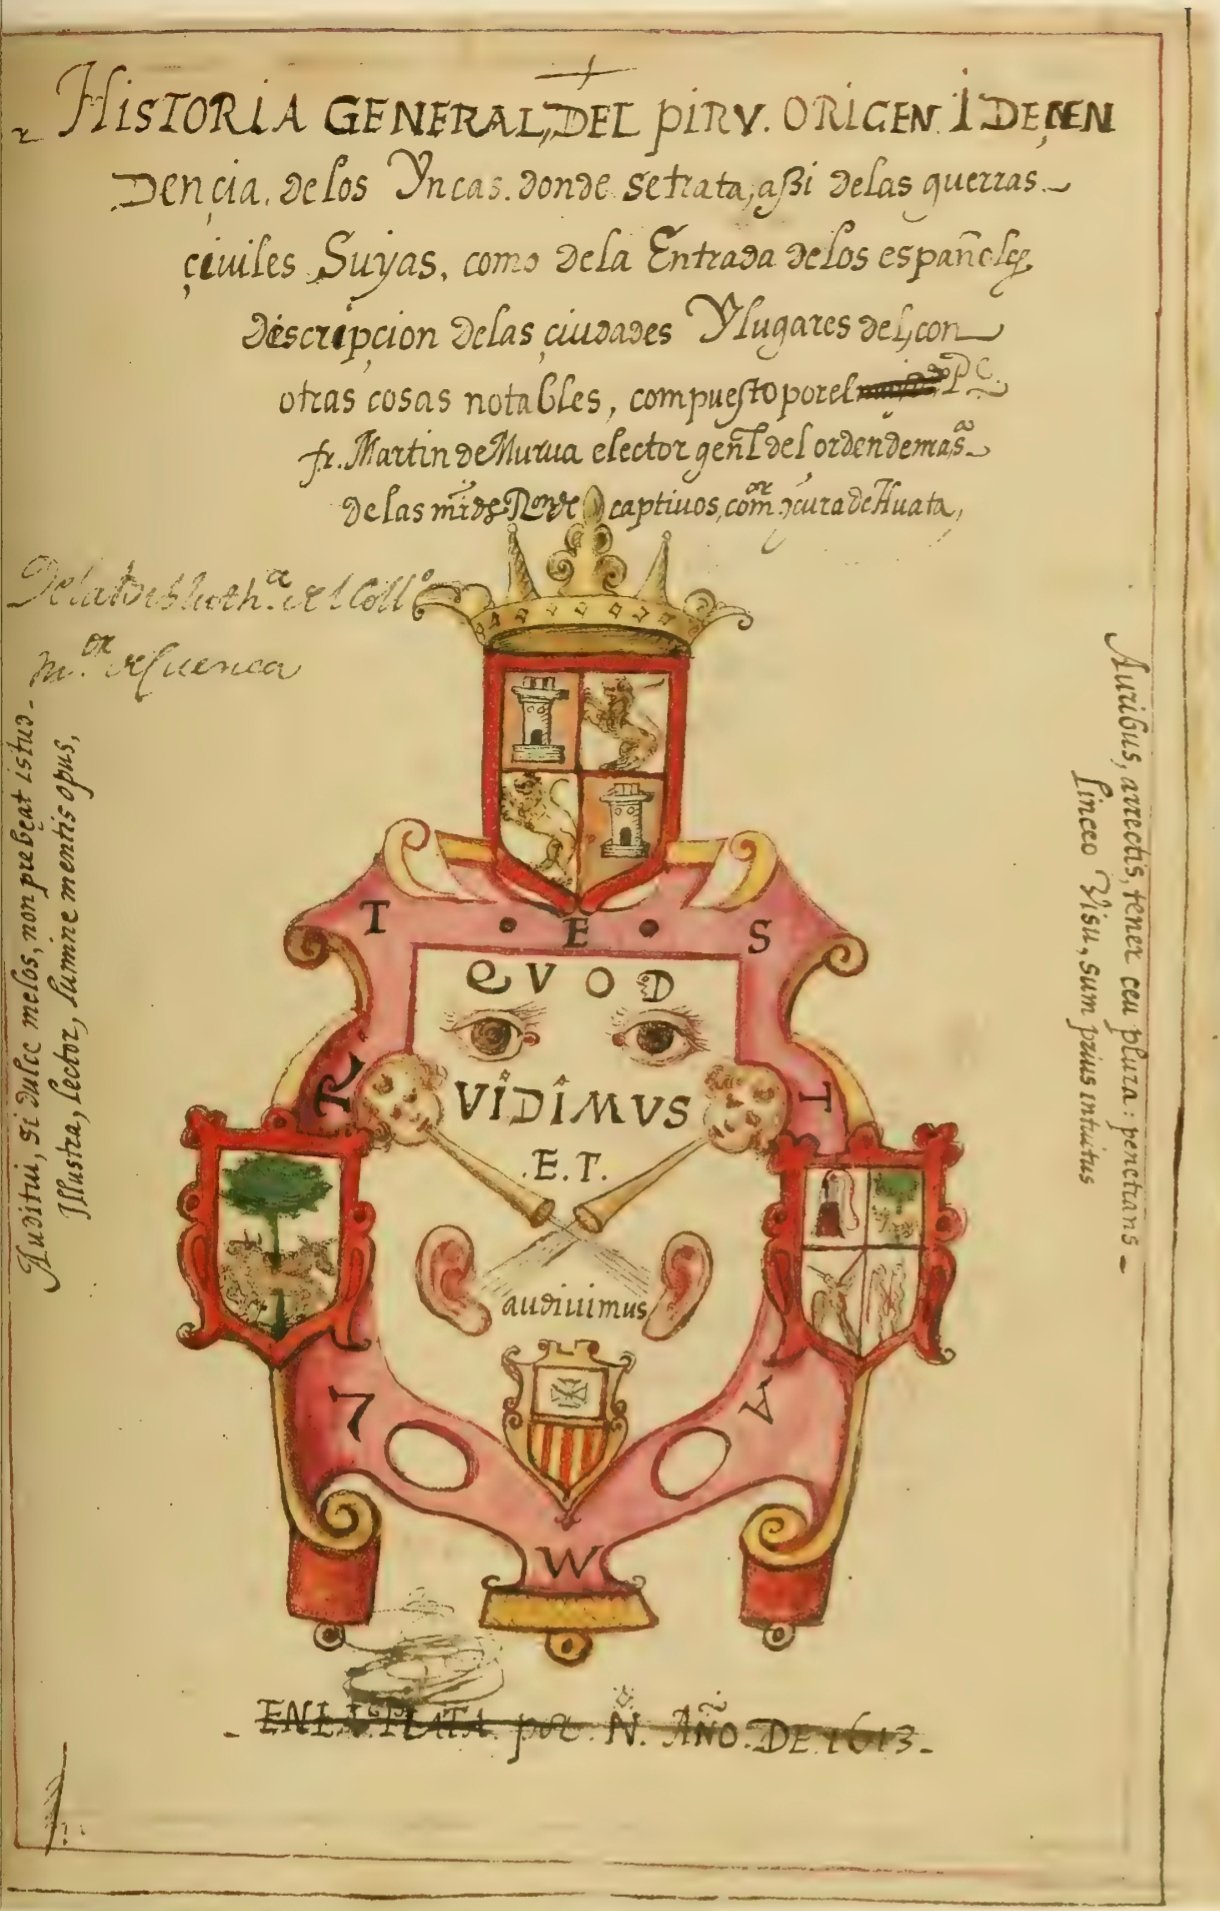 HISTORIA GENERAL, DEL PIRV. ORIGEN I DEÇEN
DENçia. de los Yncas. donde se trata, aβi de las guerras
çiuiles Suyas, como de la Entrada de los españoles,
descripçion de las çiudades Y lugares del, con
otras cosas notables, compuesto por el P
fr. Martin de Murua elector gen̄l del orden de
de las captiuos, com.or y cura de Huata,
De la Bibliothª. del Coll.º
m.or de Cuenca
Auditui, si dulce melos, non prebeat istud
Illustra, lector, lumine mentis opus,
Auribus, arrectis, tener ceu plura: penetrans
linceo Visu, sum prius intuitus
T . E . S
QVOD
VIDIMVS
.E.T.
audiuimus
R T
L A
W
ENLA PLATA por N. AÑO. DE 1613.